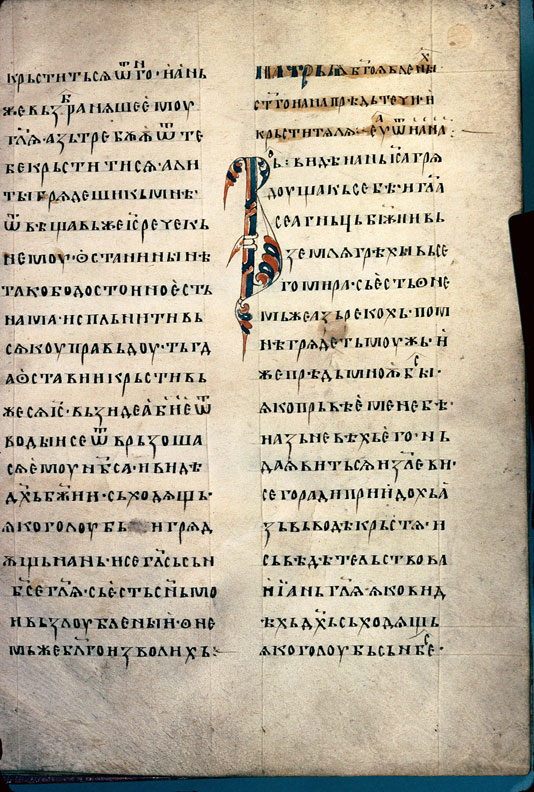 крьститьсꙗ ѿ н҄го· иань
же вьзбранꙗшеѥмоу
гл҃ꙗ· азъ трѣбꙋѫ ѿ те
бе крьститисꙗ· а ли
ты грꙗдеши къ мнѣ·
ѿвѣщавь же іс҃ рече къ
немоу· ѡстани нынѣ
тако бо достоино ѥсть
нама· испльнити вь
сꙗкоу правьдоу· тъгд
а ѡстави и крьсти вь
же сꙗ іс҃· възиде абиѥ ѿ
воды и се ѿврьзоша
сꙗ ѥмоу нб҃са· и видѣ
дх҃ъ бж҃ии· съходꙗщь·
ꙗко голоубь и грꙗд
ꙗщь нань· и се глс҃ъ сън
бс҃е гл҃ꙗ· сь ѥсть сн҃ъ мо
и възлоубленыи· ѡ не
мьже бл҃гоизволихъ:
На оутрьꙗ б҃гоꙗвлены
ст҃го иана прѣдьтечи· и
крьстителꙗ· еуа ѿ иана:
Въ ѻ· видѣ иань іс҃а грꙗ
доуща къ себѣ· и гл҃а
се агньць бж҃ии вь
землꙗ грѣхы вьсе
го мира· сь ѥсть ѡ не
мьже азъ рекохъ· по м
нѣ грꙗдеть моужь· и
же прѣдъ мноѭ бы·
ꙗко прьвѣѥ мене бѣ·
и азъ не вѣхъ ѥго· нъ
да ꙗвитьсꙗ иꙁл҃еви·
сего ради приидохъ а
зъ въ водѣ крьстꙗ· и
съвѣдѣтельствова
иіань гл҃ꙗ· ꙗко вид
ѣхъ дх҃ъ съходꙗщь
ꙗко голоубь сън бе·